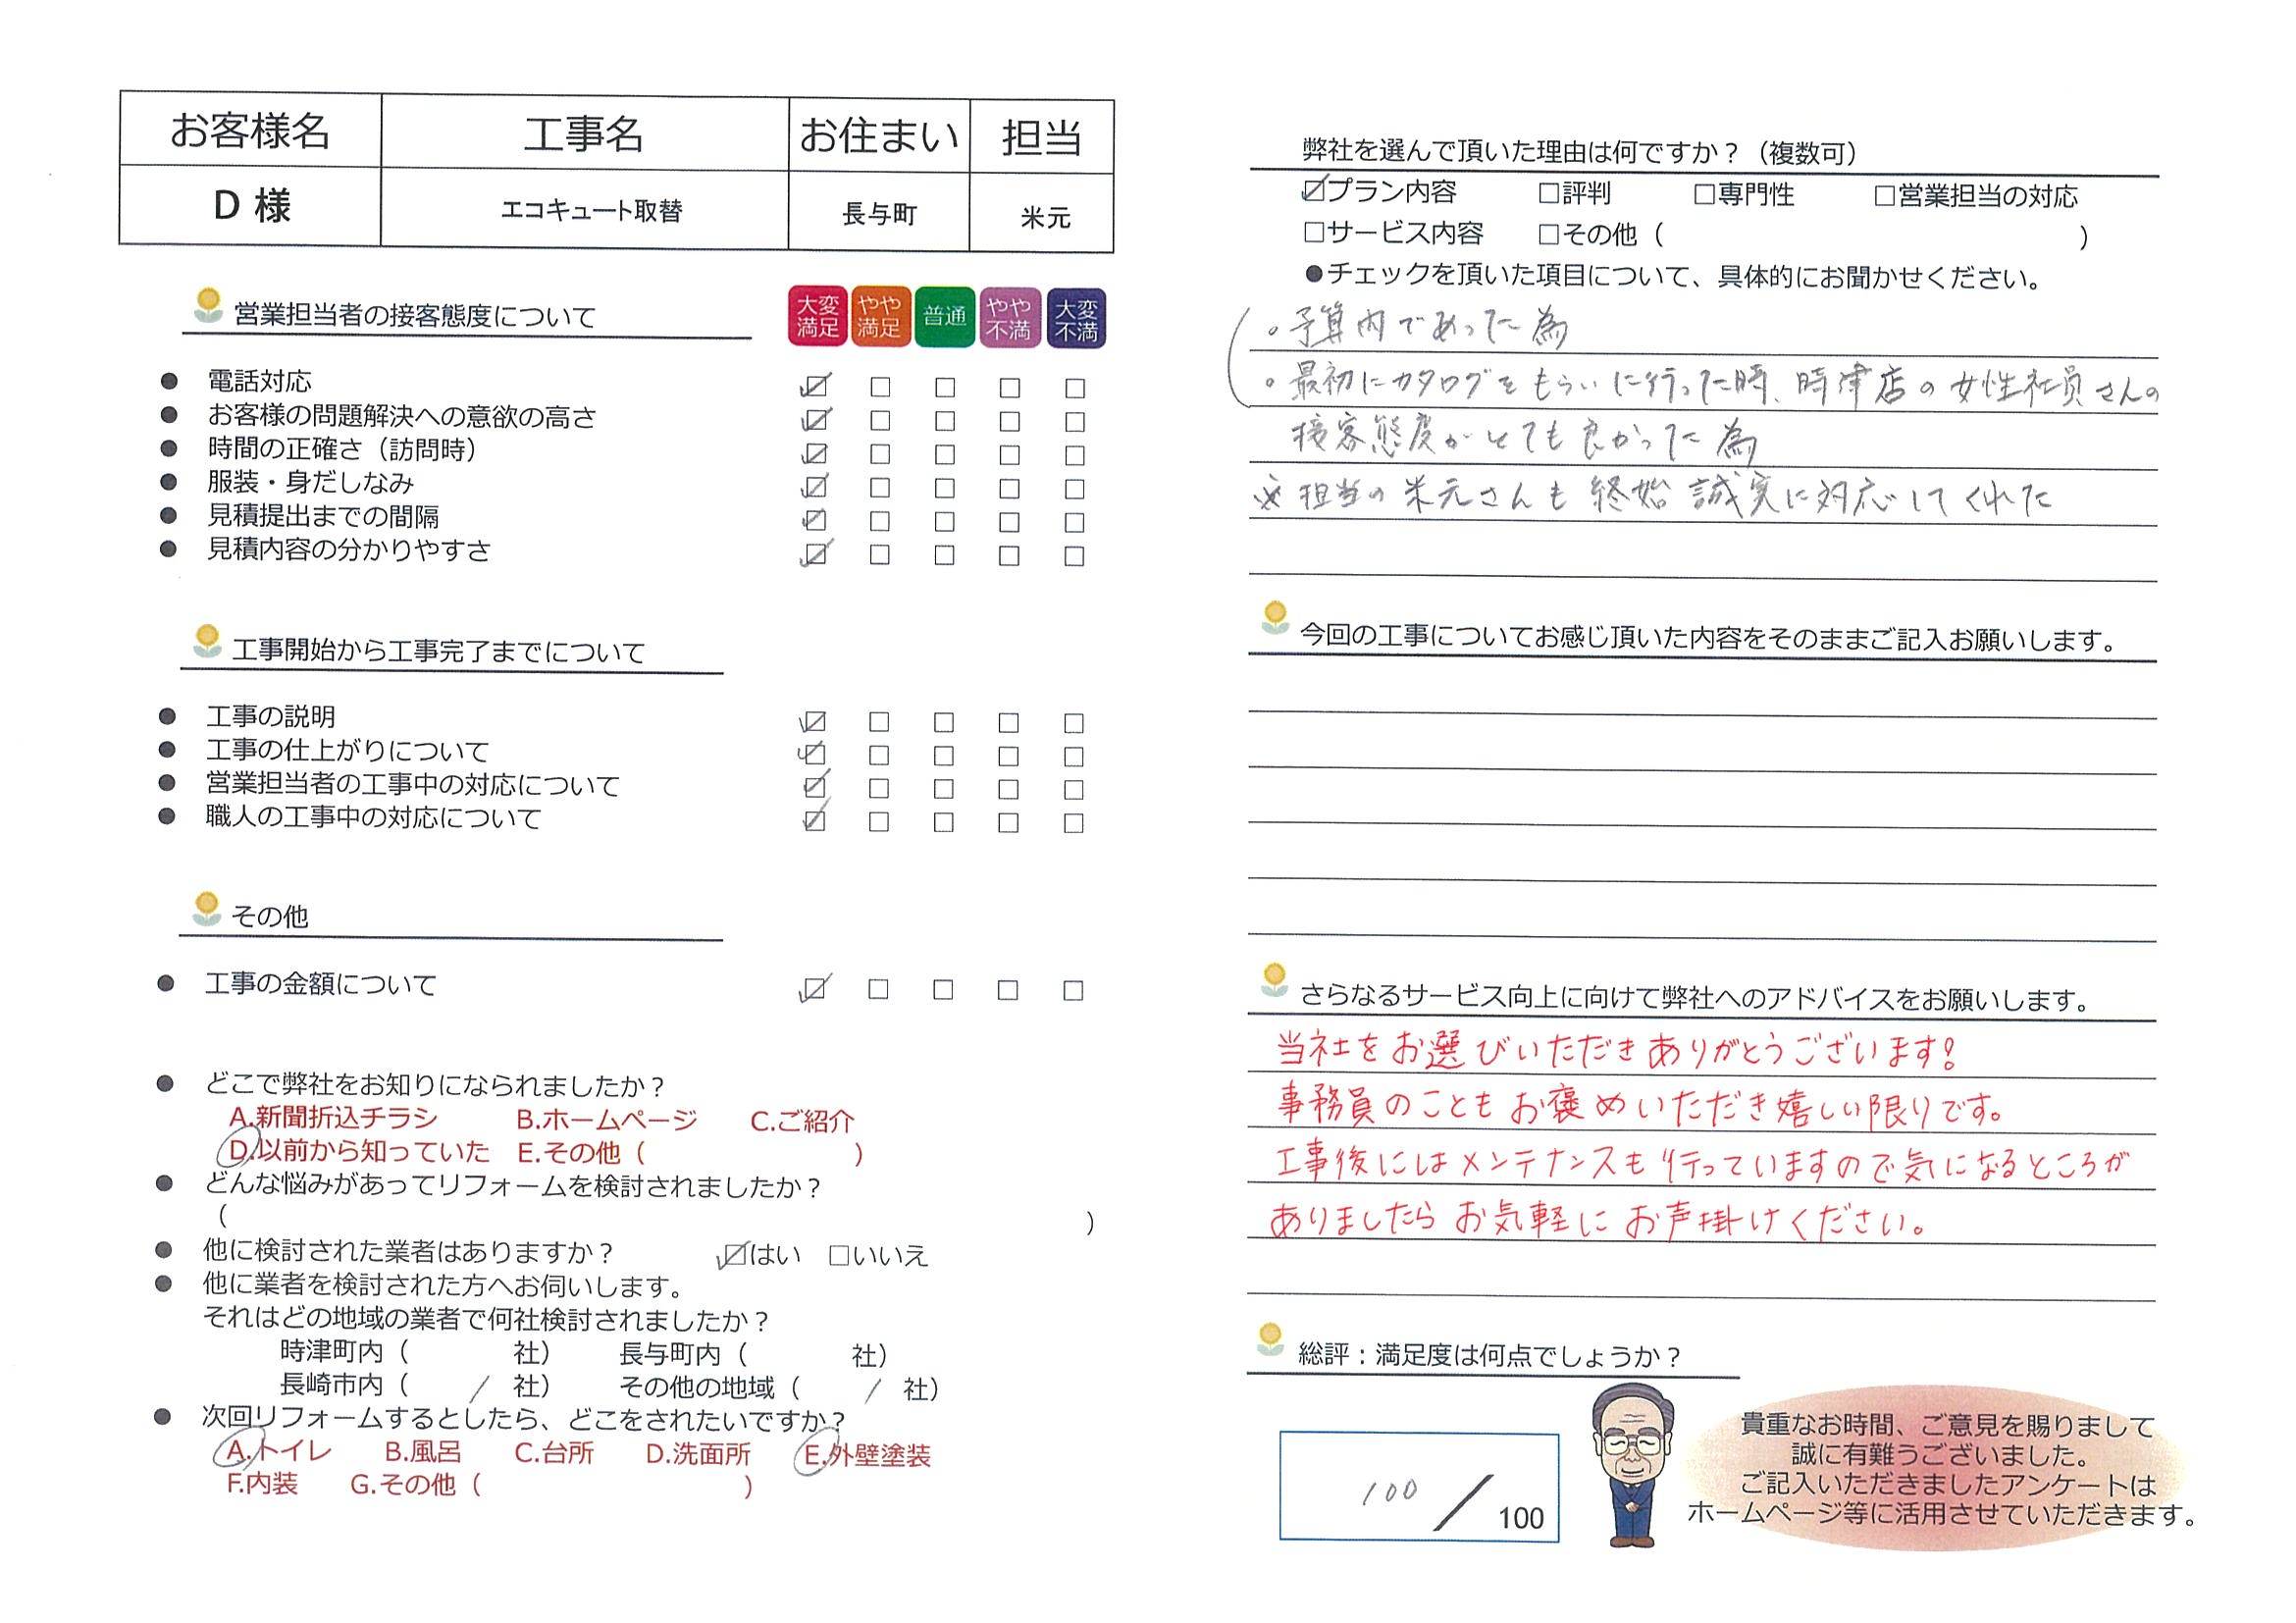 お客様名 工事名 お住まい 担当
D 様 エコキュート取替 長与町 米元
営業担当者の接客態度について 大変満足 やや満足 普通 やや不満 大変不満
● 電話対応 ☑ □ □ □ □
● お客様の問題解決への意欲の高さ ☑ □ □ □ □
● 時間の正確さ（訪問時） ☑ □ □ □ □
● 服装・身だしなみ ☑ □ □ □ □
● 見積提出までの間隔 ☑ □ □ □ □
● 見積内容の分かりやすさ ☑ □ □ □ □
工事開始から工事完了までについて
● 工事の説明 ☑ □ □ □ □
● 工事の仕上がりについて ☑ □ □ □ □
● 営業担当者の工事中の対応について ☑ □ □ □ □
● 職人の工事中の対応について ☑ □ □ □ □
その他
● 工事の金額について ☑ □ □ □ □
● どこで弊社をお知りになられましたか？
A.新聞折込チラシ B.ホームページ C.ご紹介
D.以前から知っていた E.その他（ ）
● どんな悩みがあってリフォームを検討されましたか？
（ ）
● 他に検討された業者はありますか？ ☑はい □いいえ
● 他に業者を検討された方へお伺いします。
それはどの地域の業者で何社検討されましたか？
時津町内（ 社） 長与町内（ 社）
長崎市内（ / 社） その他の地域（ / 社）
● 次回リフォームするとしたら、どこをされたいですか？
A.トイレ B.風呂 C.台所 D.洗面所 E.外壁塗装
F.内装 G.その他（ ）
弊社を選んで頂いた理由は何ですか？（複数可）
☑プラン内容 □評判 □専門性 □営業担当の対応
□サービス内容 □その他（ ）
●チェックを頂いた項目について、具体的にお聞かせください。
。予算内であった為
。最初にカタログをもらいに行った時、時津店の女性社員さんの
接客態度がとても良かった為
※担当の米元さんも終始誠実に対応してくれた
今回の工事についてお感じ頂いた内容をそのままご記入お願いします。
さらなるサービス向上に向けて弊社へのアドバイスをお願いします。
当社をお選びいただきありがとうございます!
事務員のこともお褒めいただき嬉しい限りです。
工事後にはメンテナンスも行っていますので気になるところが
ありましたらお気軽にお声掛けください。
総評：満足度は何点でしょうか？
100 / 100
貴重なお時間、ご意見を賜りまして
誠に有難うございました。
ご記入いただきましたアンケートは
ホームページ等に活用させていただきます。